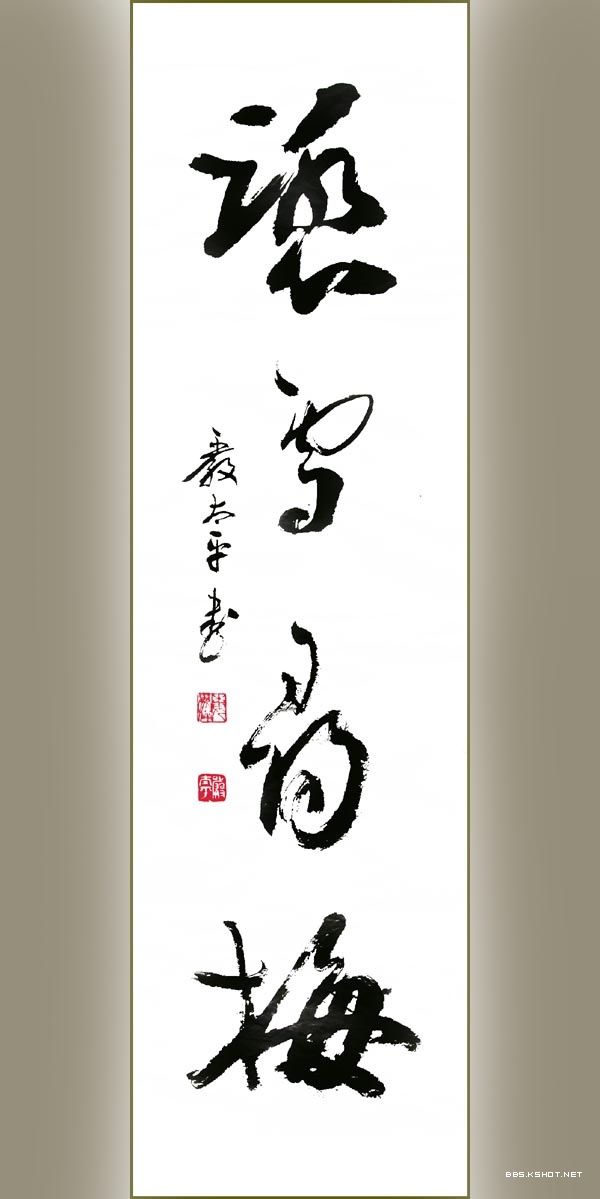 踏雪尋梅
嚴太平書
BBS.KSHOT.NET